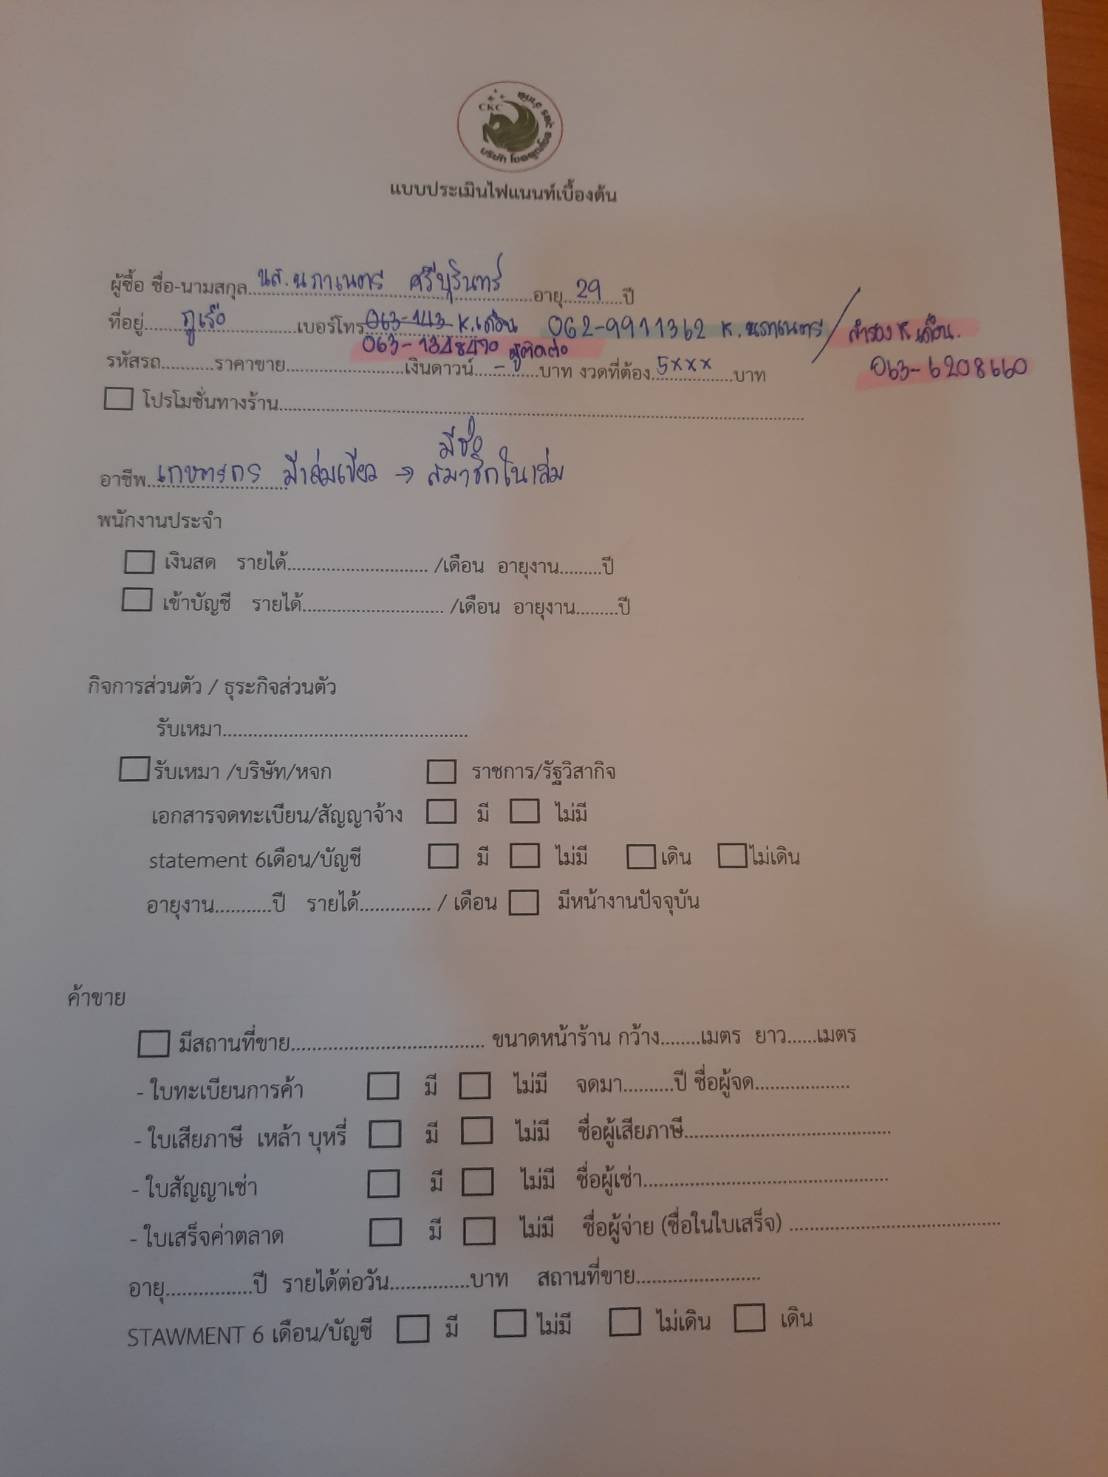 CKC
แบบประเมินไฟแนนท์เบื้องต้น
ผู้ซื้อ ชื่อ-นามสกุล นส. นภาเนตร ศรีบุรินทร์ อายุ 29 ปี
ที่อยู่ ภูเรือ เบอร์โทร 063-143 K.เดือน 062-9911362 K. นภาเนตร / สำรอง K. เดือน.
063-1348490 ผู้ติดต่อ 063-6208660
รหัสรถ...........ราคาขาย........................เงินดาวน์ - บาท งวดที่ต้อง 5xxx บาท
โปรโมชั่นทางร้าน
มีชื่อ
อาชีพ เกษตรกร มีเล่มเขียว → สมาชิกในเล่ม
พนักงานประจำ
เงินสด รายได้............................ /เดือน อายุงาน.........ปี
เข้าบัญชี รายได้............................ /เดือน อายุงาน.........ปี
กิจการส่วนตัว / ธุระกิจส่วนตัว
รับเหมา
รับเหมา /บริษัท/หจก ราชการ/รัฐวิสากิจ
เอกสารจดทะเบียน/สัญญาจ้าง มี ไม่มี
statement 6เดือน/บัญชี มี ไม่มี เดิน ไม่เดิน
อายุงาน...........ปี รายได้.............. / เดือน มีหน้างานปัจจุบัน
ค้าขาย
มีสถานที่ขาย..................................... ขนาดหน้าร้าน กว้าง........เมตร ยาว......เมตร
- ใบทะเบียนการค้า มี ไม่มี จดมา..........ปี ชื่อผู้จด
- ใบเสียภาษี เหล้า บุหรี่ มี ไม่มี ชื่อผู้เสียภาษี
- ใบสัญญาเช่า มี ไม่มี ชื่อผู้เช่า
- ใบเสร็จค่าตลาด มี ไม่มี ชื่อผู้จ่าย (ชื่อในใบเสร็จ)
อายุ.................ปี รายได้ต่อวัน................บาท สถานที่ขาย
STAWMENT 6 เดือน/บัญชี มี ไม่มี ไม่เดิน เดิน